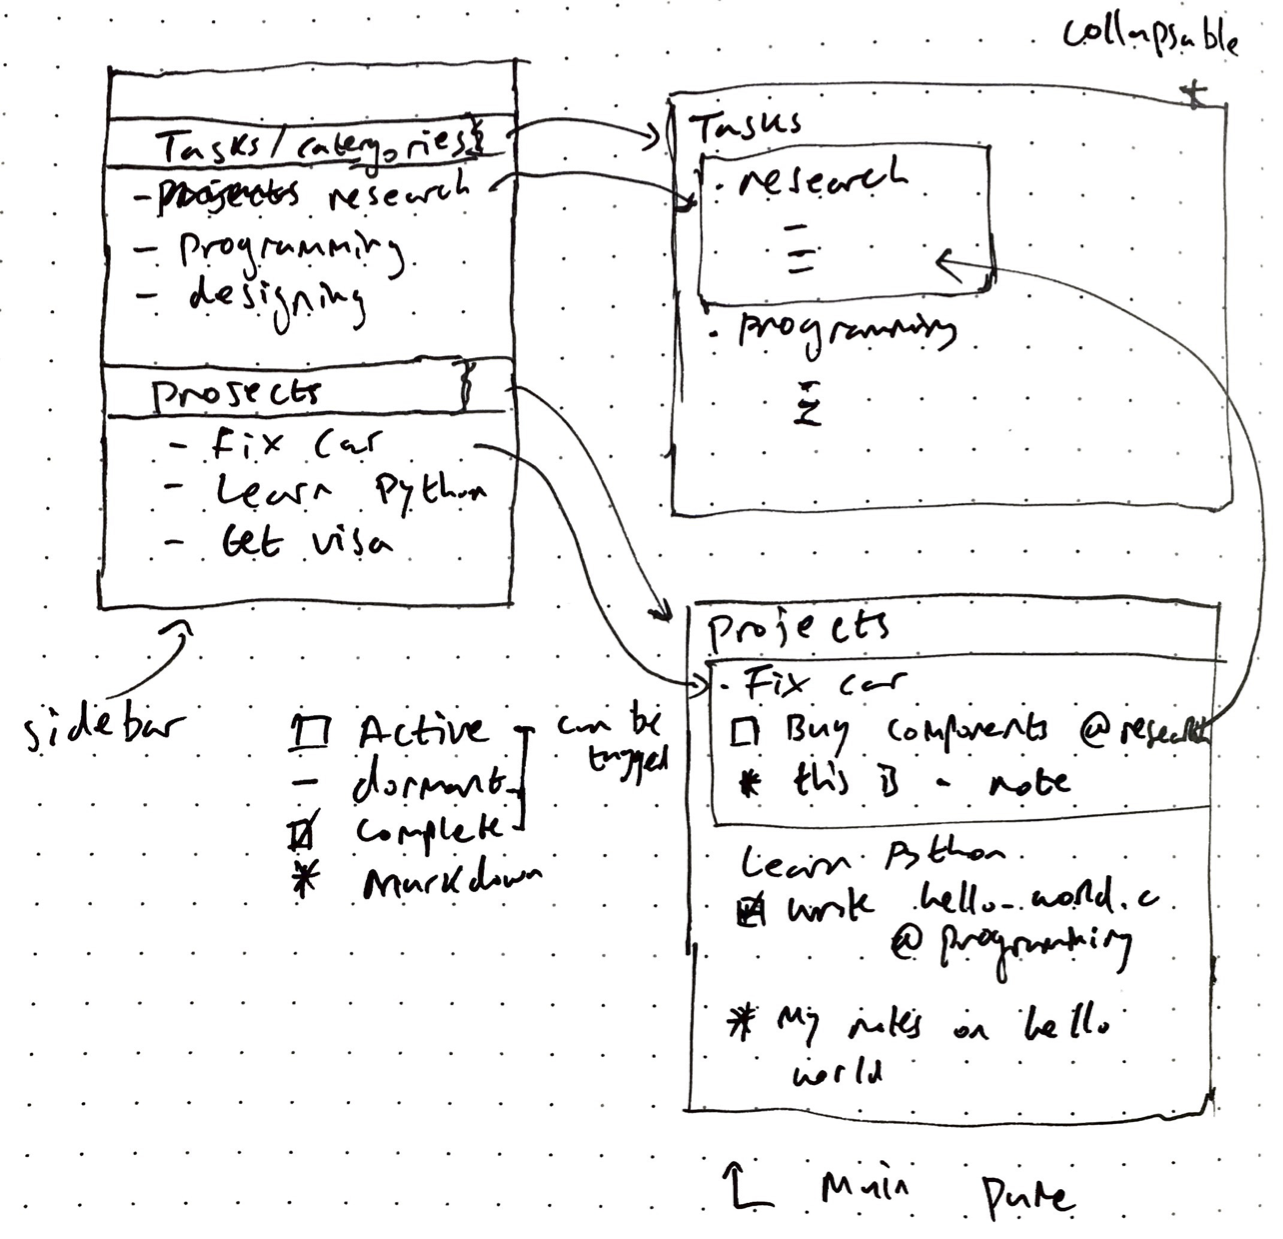 collapsable
Tasks/categories
- projects research
- programming
- designing
Projects
- Fix car
- Learn Python
- Get visa
sidebar
☐ Active
- dormant
☑ complete
* Markdown
can be
tagged
Tasks
• research
• programming
Projects
• Fix car
☐ Buy components @research
* this is a note
Learn Python
☑ write hello_world.c
@programming
* My notes on hello
world
Main pane